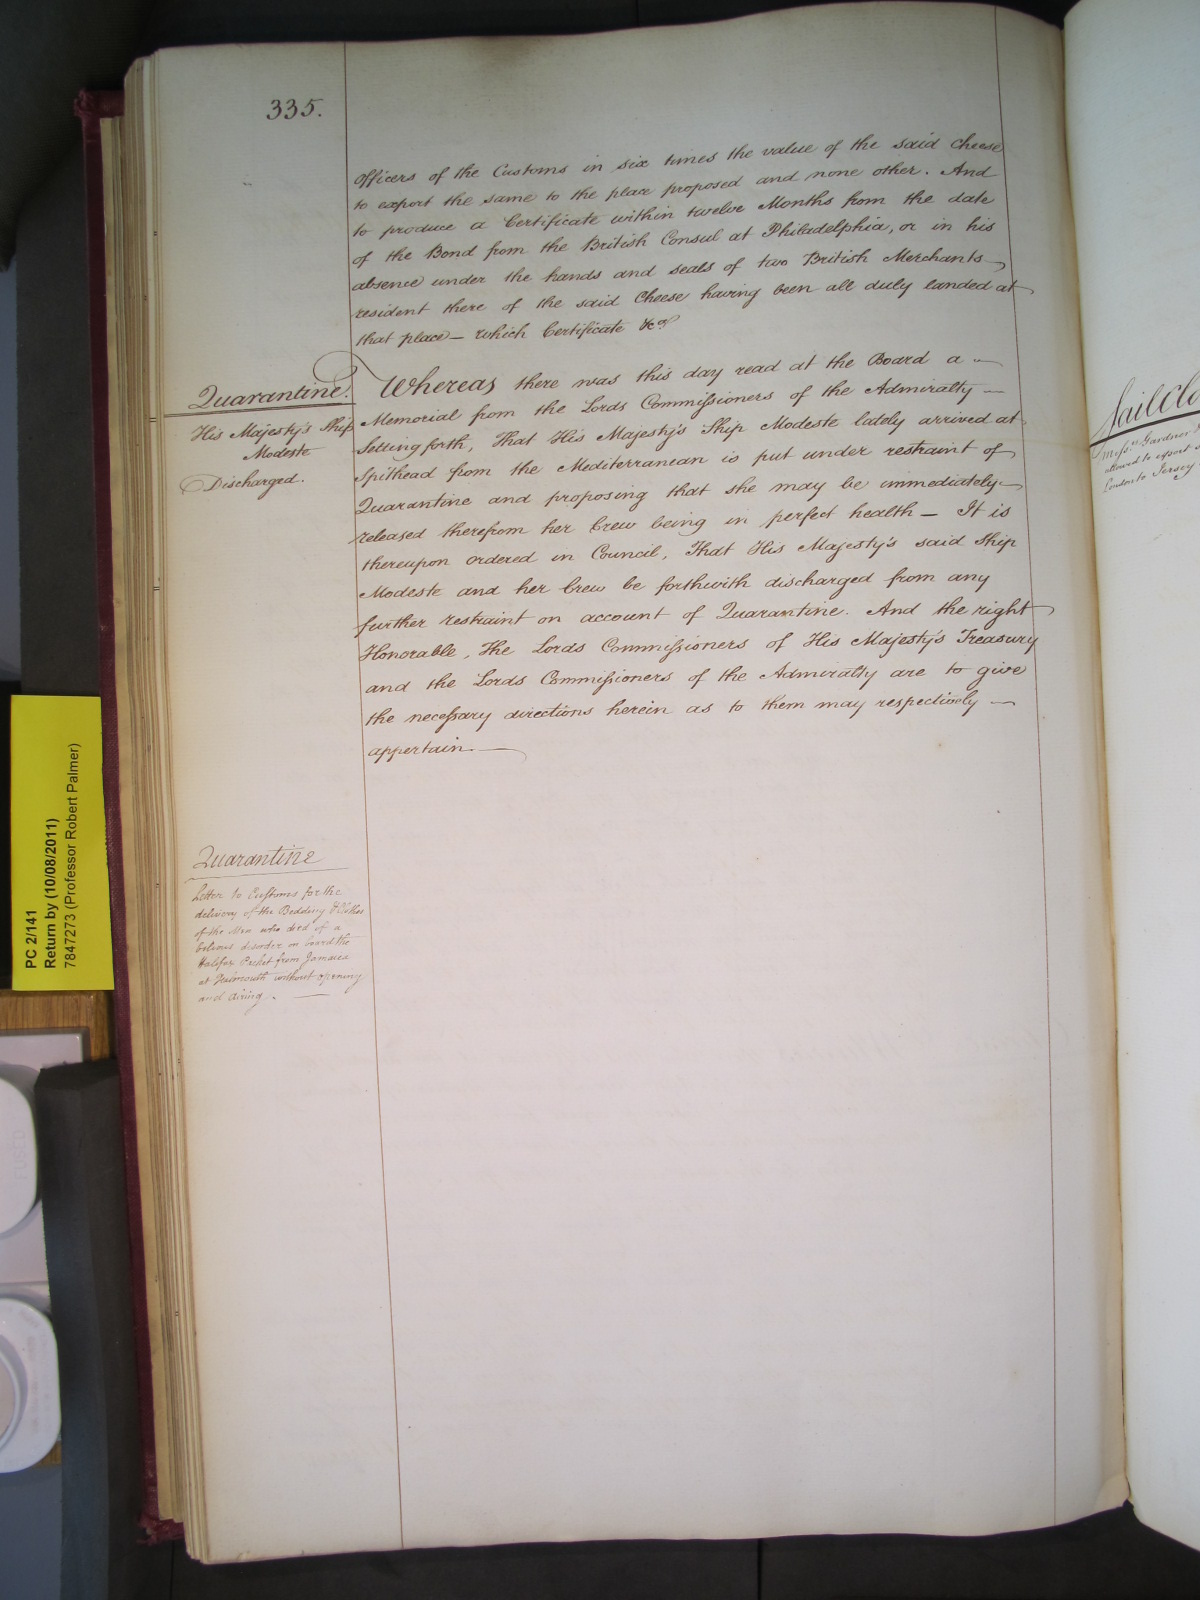 335.
officers of the Customs in six times the value of the said Cheese
to export the same to the place proposed and none other. And
to produce a Certificate within twelve Months from the date
of the Bond from the British Consul at Philadelphia, or in his
absence under the hands and seals of two British Merchants
resident there of the said Cheese having been all duly landed at
that place — which Certificate &c.
Quarantine.
His Majesty's Ship
Modeste
Discharged.
Whereas there was this day read at the Board a
Memorial from the Lords Commissioners of the Admiralty —
Setting forth, That His Majesty's Ship Modeste lately arrived at
Spithead from the Mediterranean is put under restraint of
Quarantine and proposing that she may be immediately
released therefrom her Crew being in perfect health — It is
thereupon ordered in Council, That His Majesty's said Ship
Modeste and her Crew be forthwith discharged from any
further restraint on account of Quarantine. And the right
Honorable, The Lords Commissioners of His Majesty's Treasury
and the Lords Commissioners of the Admiralty are to give
the necessary directions herein as to them may respectively —
appertain. —
Quarantine
Letter to Customs for the
delivery of the Bedding & Clothes
of the Men who died of a
bilious disorder on board the
Halifax Packet from Jamaica
at Falmouth without opening
and airing. —
Sail Clo
Mess.rs Gardner
allowed to export
London to Jersey
PC 2/141
Return by (10/08/2011)
7847273 (Professor Robert Palmer)